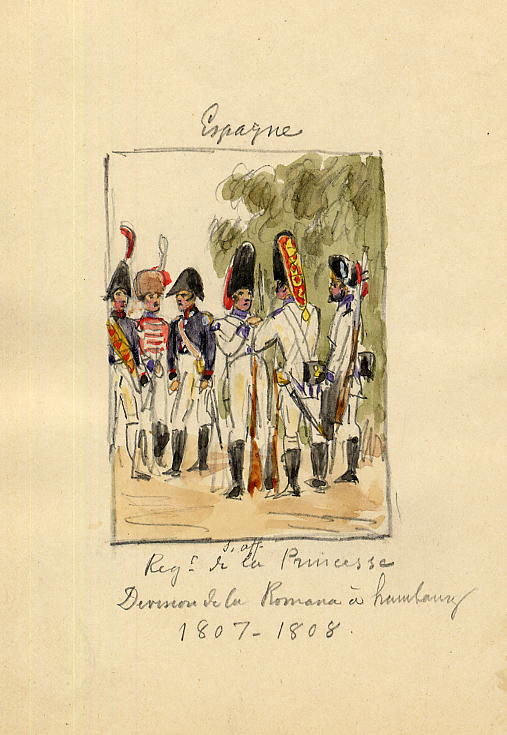 Espagne
Regt de la Princesse
Division de la Romana à hambourg
1807-1808.